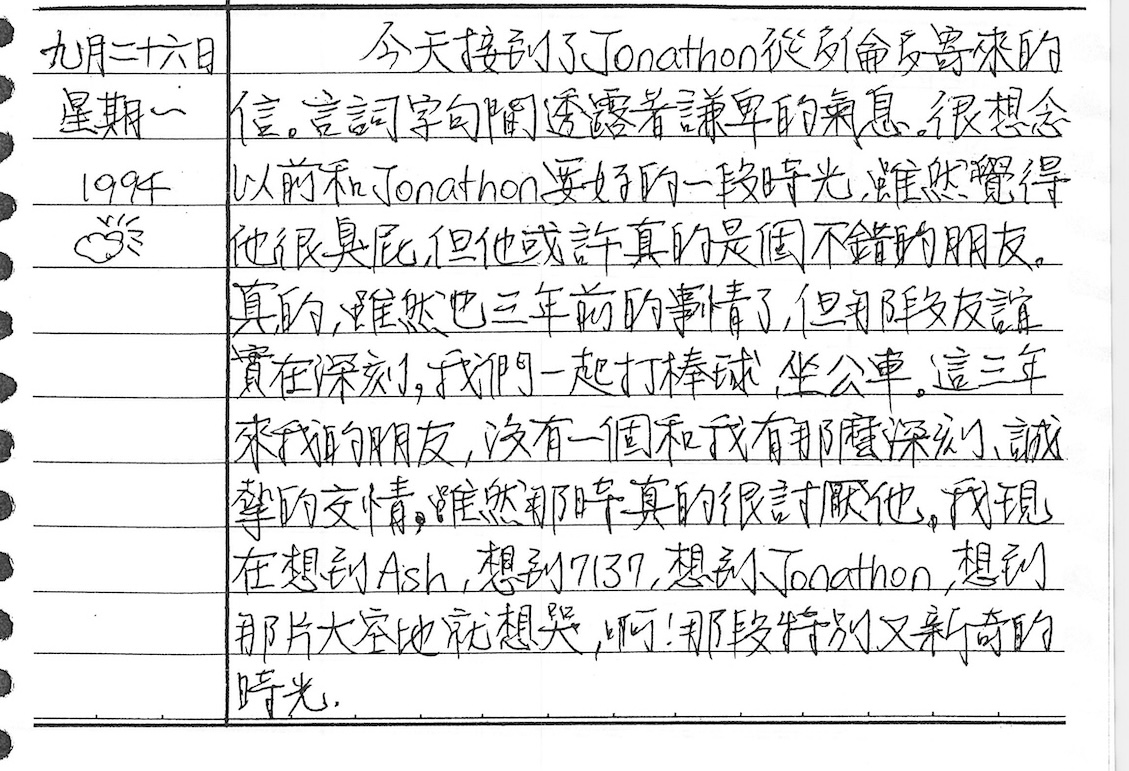 九月二十六日
星期一
1994
今天接到了Jonathon從多倫多寄來的
信。言詞字句間透露著謙卑的氣息。很想念
以前和Jonathon要好的一段時光,雖然覺得
他很臭屁,但他或許真的是個不錯的朋友。
真的,雖然也三年前的事情了,但那段友誼
實在深刻,我們一起打棒球,坐公車。這三年
來我的朋友,沒有一個和我有那麼深刻、誠
摯的交情,雖然那時真的很討厭他。我現
在想到Ash,想到7137,想到Jonathon,想到
那片大空地就想哭,啊!那段特別又新奇的
時光.